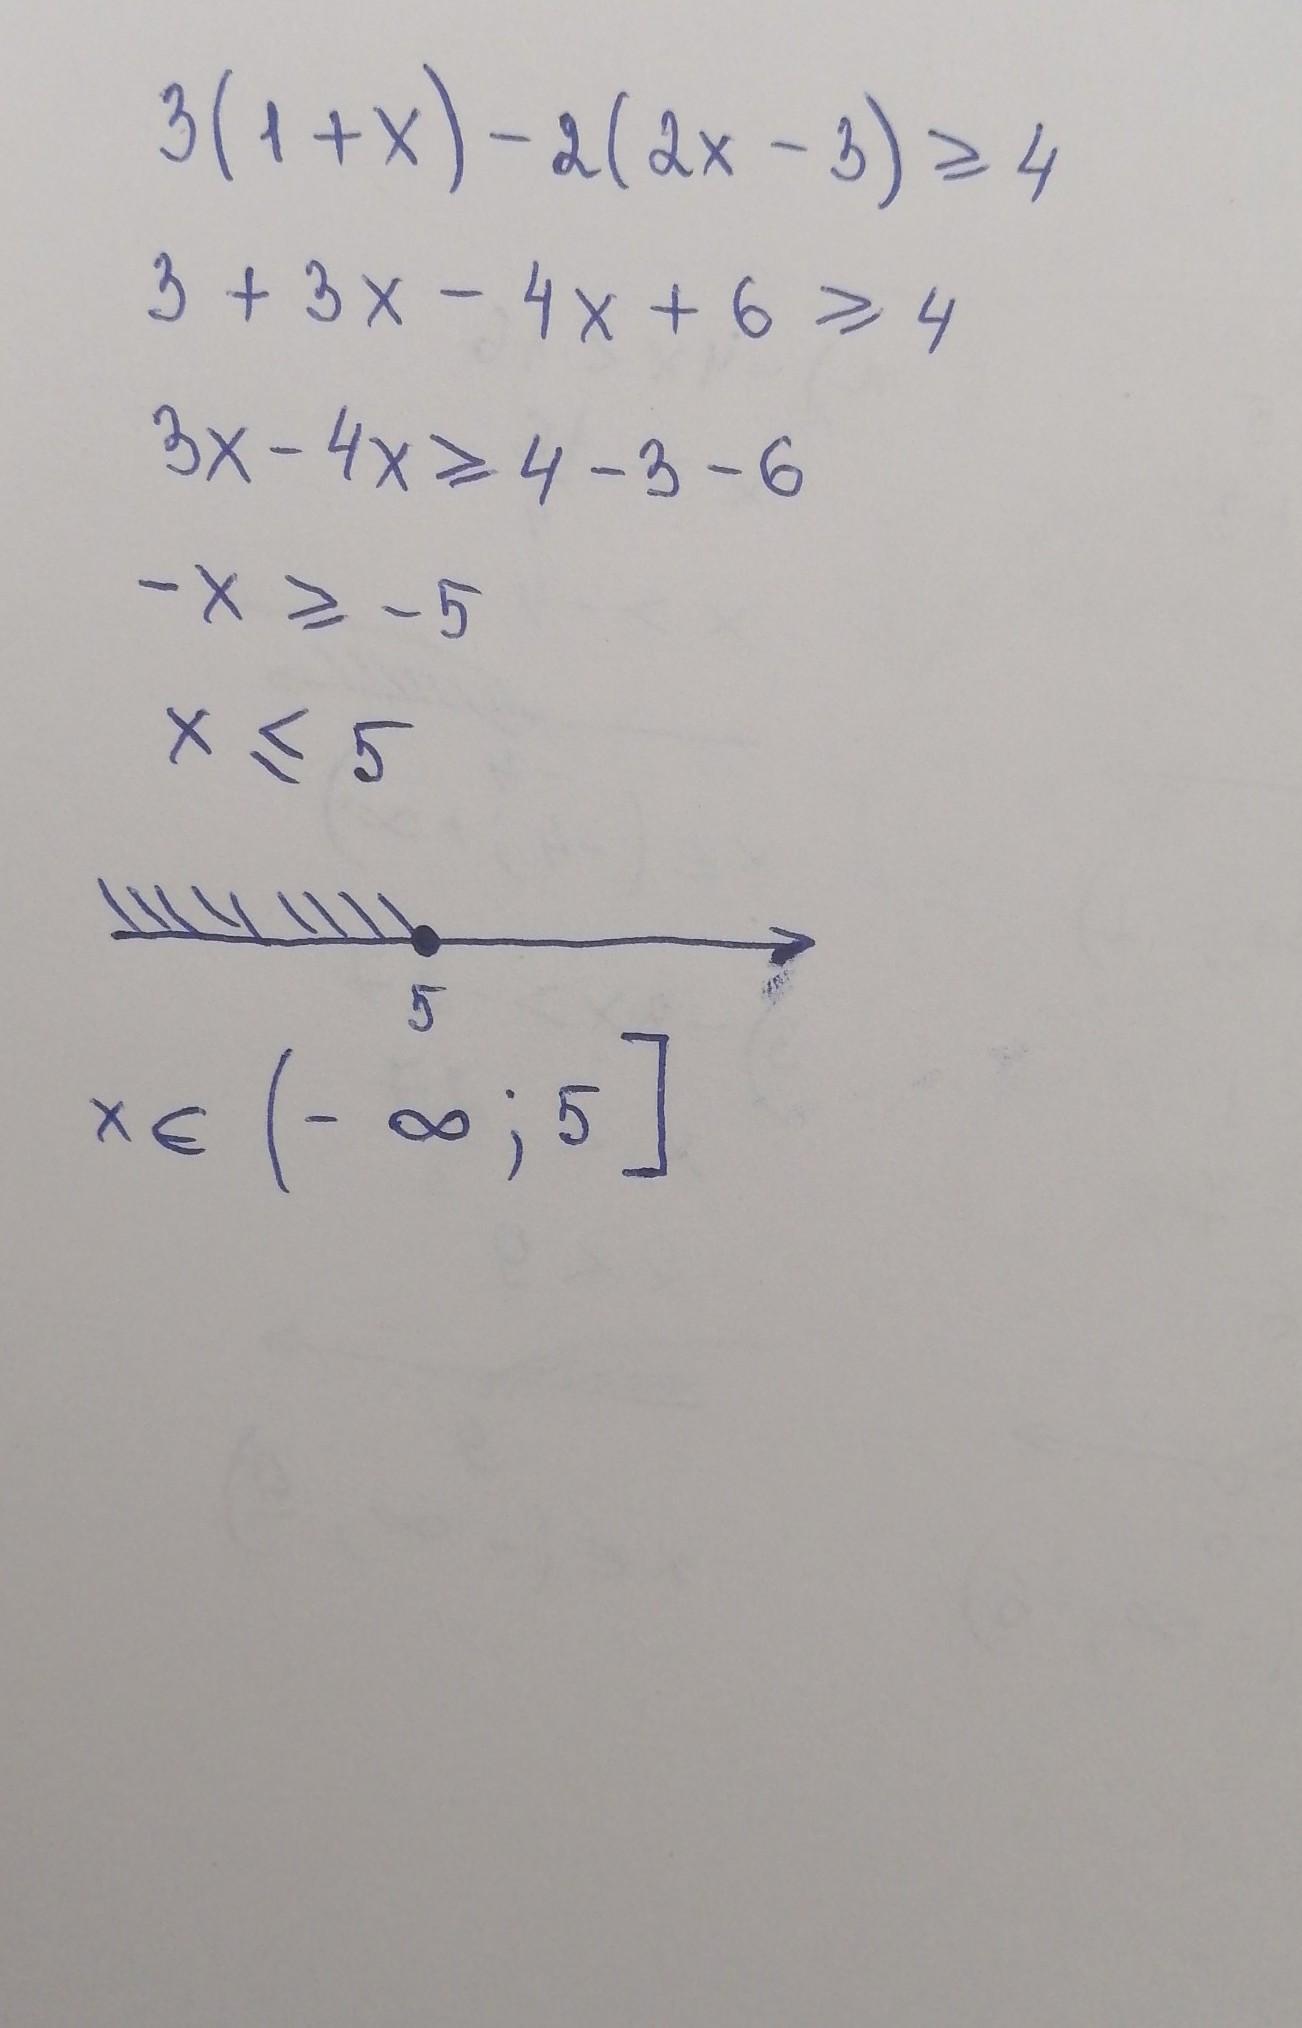 3(1+x)-2(2x-3)⩾4
3+3x-4x+6⩾4
3x-4x⩾4-3-6
-x⩾-5
x⩽5
5
x∈(-∞;5]